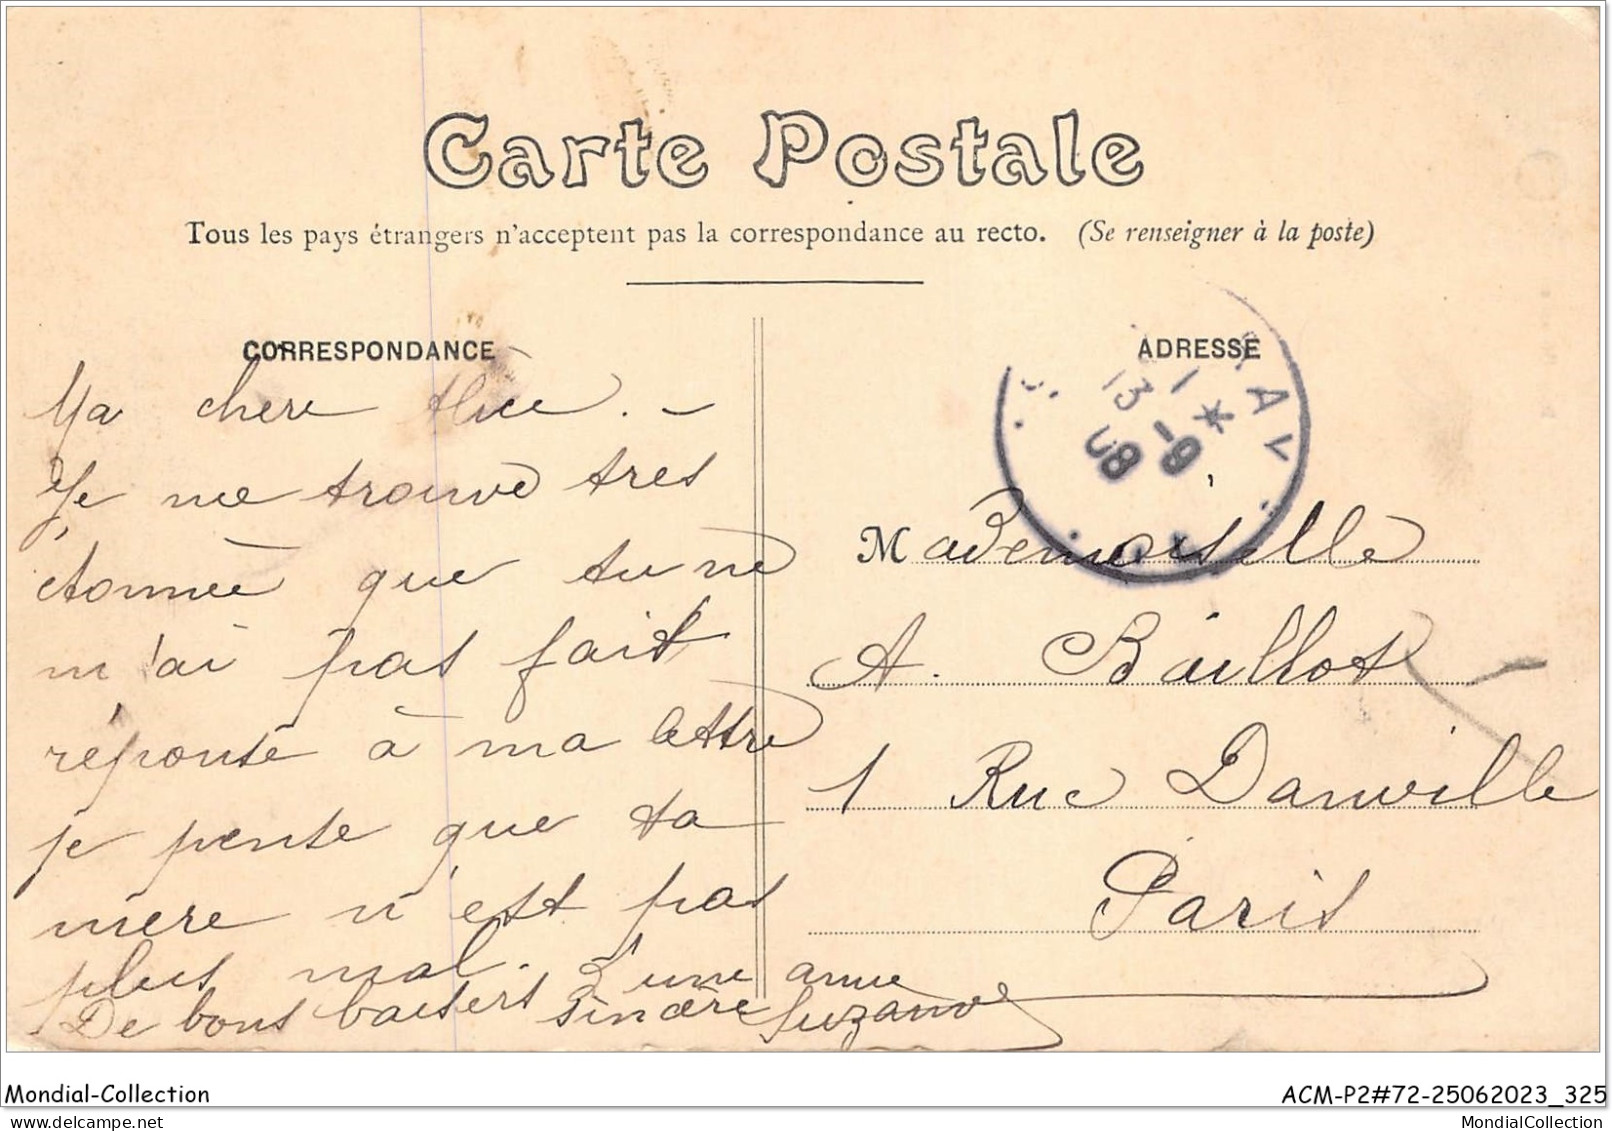 Carte Postale
Tous les pays étrangers n'acceptent pas la correspondance au recto. (Se renseigner à la poste)
CORRESPONDANCE
Ma chere Alice. –
Je me trouve tres
étonnée que tu ne
m'ai pas fait
réponse à ma lettre
je pense que ta
mere n'est pas
plus mal. D'une amie
De bons baisers sincère Suzanne
ADRESSE
1 *
13 -9
08
Mademoiselle
A. Baillot
1 Rue Danville
Paris
Mondial-Collection
ACM-P2#72-25062023_325
mondial-collection
MondialCollection